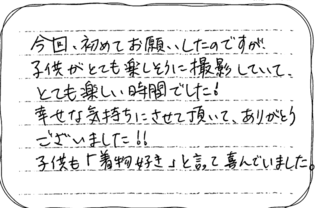 今回、初めてお願いしたのですが
子供がとても楽しそうに撮影していて、
とても楽しい時間でした!
幸せな気持ちにさせて頂いて、ありがとう
ございました!!
子供も「着物好き」と言って喜んでいました。